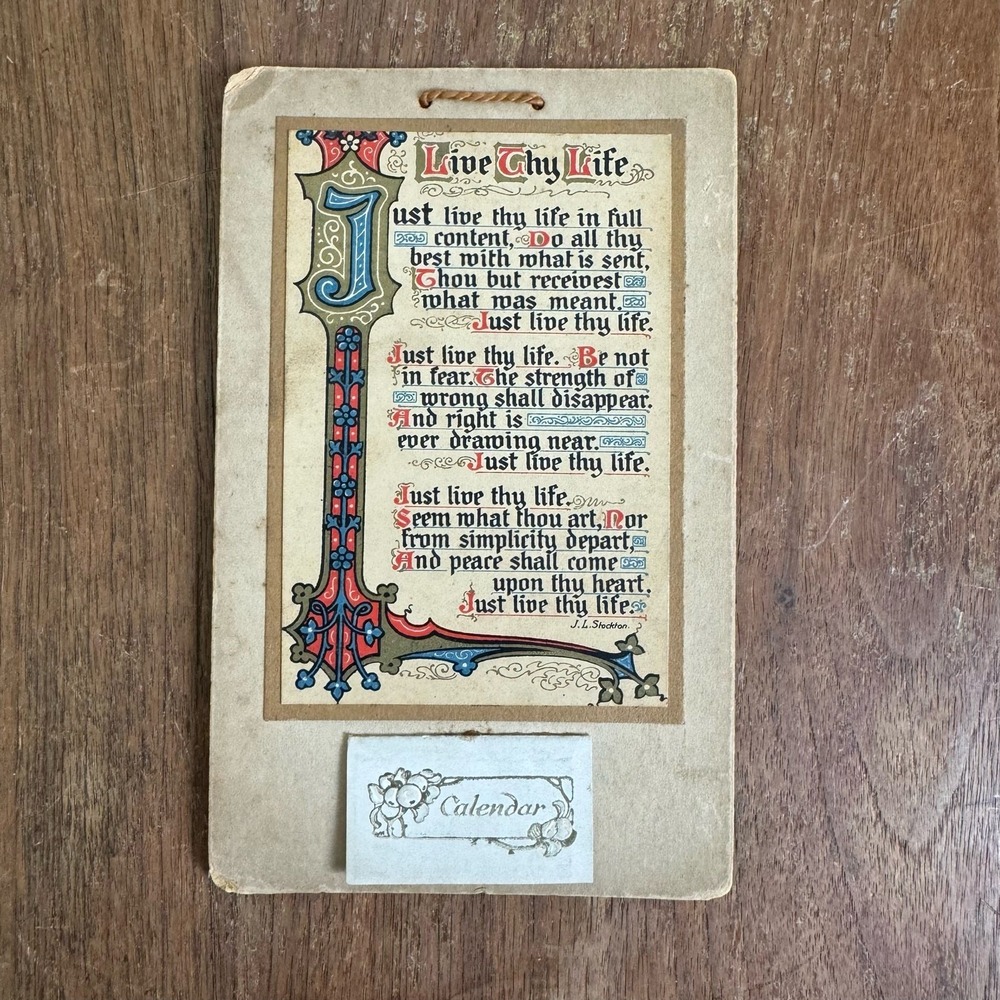 Live Thy Life
Just live thy life in full
content, Do all thy
best with what is sent,
Thou but receivest
what was meant.
Just live thy life.
Just live thy life. Be not
in fear. The strength of
wrong shall disappear.
And right is
ever drawing near.
Just live thy life.
Just live thy life.
Seem what thou art, Nor
from simplicity depart,
And peace shall come
upon thy heart.
Just live thy life.
J. L. Stockton.
Calendar